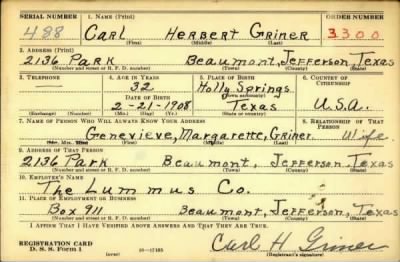 SERIAL NUMBER 1. NAME (Print) ORDER NUMBER
488 Carl Herbert Griner 3300
(First) (Middle) (Last)
2. ADDRESS (Print)
2136 Park Beaumont, Jefferson, Texas
(Number and street or R. F. D. number) (Town) (County) (State)
3. TELEPHONE 4. AGE IN YEARS 5. PLACE OF BIRTH 6. COUNTRY OF CITIZENSHIP
— 32 Holly Springs
DATE OF BIRTH (Town or county)
2-21-1908 Texas U.S.A.
(Exchange) (Number) (Mo.) (Day) (Yr.) (State or country)
7. NAME OF PERSON WHO WILL ALWAYS KNOW YOUR ADDRESS 8. RELATIONSHIP OF THAT PERSON
Genevieve, Margarette, Griner Wife
(Mr., Mrs., Miss) (First) (Middle) (Last)
9. ADDRESS OF THAT PERSON
2136 Park Beaumont, Jefferson, Texas
(Number and street or R. F. D. number) (Town) (County) (State)
10. EMPLOYER'S NAME
The Lummus Co.
11. PLACE OF EMPLOYMENT OR BUSINESS
Box 911 Beaumont, Jefferson, Texas
(Number and street or R. F. D. number) (Town) (County) (State)
I AFFIRM THAT I HAVE VERIFIED ABOVE ANSWERS AND THAT THEY ARE TRUE.
REGISTRATION CARD Carl H Griner
D. S. S. Form 1 (over) (Registrant's signature)